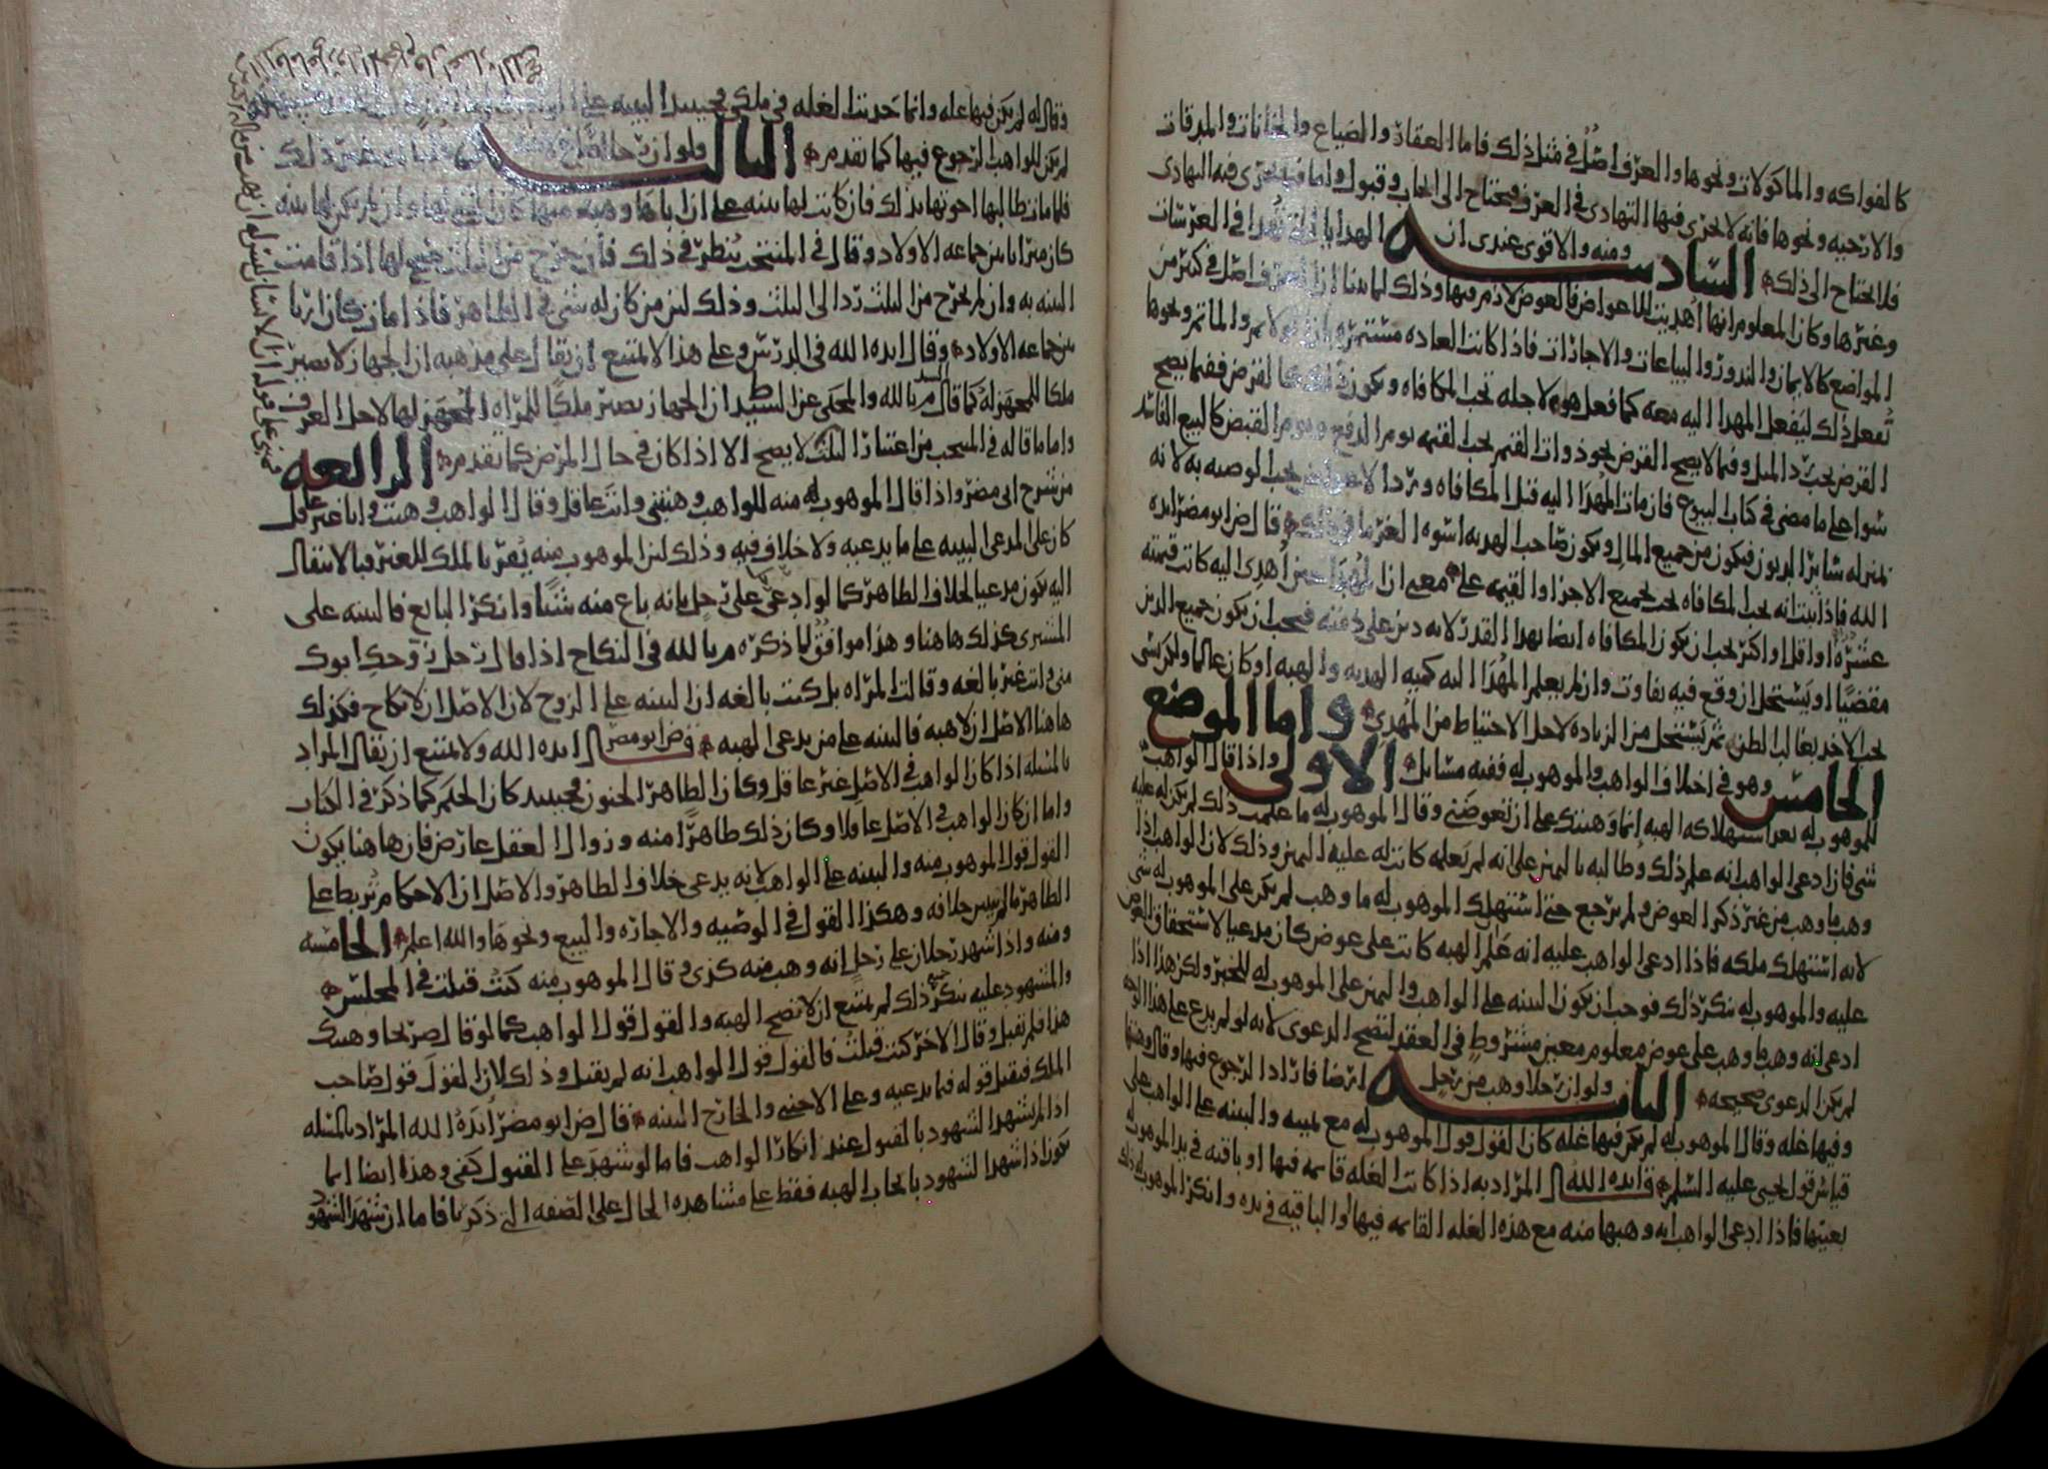 كالفواكه والماكولات ونحوها والعرف اصل في مثل ذلك فاما العقار والضياع والخانات والمدقات
والارحيه ونحوها فانه لا تجزي فيها التهادي في العرف فيحتاج الى ايجاب وقبول واما فيما تجري فيه التهادي
فلا يحتاج الى ذلك السادسه ومنه والاقوى عندي ان الهدايا التي تهدا في العرسات
وغيرها وكان المعلوم انها اهديت للاعواض فالعوض لازم فيها وذلك لما بينا ان العرف اصل في كثير من
المواضع كالايمان والنذور والبياعات والاجارات فاذا كانت العاده مستمره والماتم ونحوها
تفعل ذلك ليفعل المهدا اليه معه كما فعل هو لاجله تجب المكافاه ويكون ذلك كالقرض ففيما يصح
القرض يجب رد المثل وفيما لا يصح القرض يجوز وات القيم يجب القيمه يوم الدفع ويوم القبض كالبيع الفاسد
سوا على ما مضى في كتاب البيوع فان مات المهدا اليه قبل المكافاه يجب الوصيه به لانه
بمنزله سائر الديون فيكون من جميع المال ويكون صاحب الهديه اسوه الغرما في ذلك قال ض ابو مضر ايده
الله فاذا ثبت انه تجب المكافاه يجب لجميع الاجزا والقيمه على معنى ان المهدا حين اهدي اليه كانت قيمته
عشره او اقل او اكثر يجب ان يكون المكافاه ايضا بهذا القدر لانه دين على ذمته فيجب ان يكون جميع الدين
مقضيا او يستحل ان وقع فيه تفاوت وان لم يعلم المهدا اليه كميه الهديه والهبه او كان عالما ولكن نسي
يجب الاخذ بغالب الظن ثم يستحل من الزياده لاجل الاحتياط من المهدي واما الموضع
الخامس وهو في اختلاف الواهب والموهوب له ففيه مسائل الاولى واذا قال الواهب
للموهوب له بعد استهلاكه الهبه انما وهبتك على ان تعوضني وقال الموهوب له ما علمت ذلك لم يكن له عليه
شي فان ادعى الواهب انه علم ذلك وطالبه باليمين على انه لم يعلمه كانت له عليه اليمين وذلك لان الواهب اذا
وهب ما وهب من غير ذكر العوض ولم يرجع حتى استهلك الموهوب له ما وهب لم يكن على الموهوب له شي
لانه استهلك ملكه فاذا ادعى الواهب عليه انه علم الهبه كانت على عوض كان مدعيا لاستحقاق العوض
عليه والموهوب له ينكر ذلك فوجب ان يكون البينه على الواهب واليمين على الموهوب له للخبر ولكن هذا اذا
ادعى انه وهب ما وهب على عوض معلوم معين مشروط في العقد لتصح الدعوى لانه لو لم يدع على هذا الوجه
لم يكن الدعوى صحيحه الثانيه ولو ان رجلا وهب من رجل ارضا فاراد الرجوع فيها وقال وهبتها
وفيها غله وقال الموهوب له لم يكن فيها غله كان القول قول الموهوب له مع يمينه والبينه على الواهب على
قياس قول يحيى عليه السلم قال ايده الله المراد به اذا كانت الغله قائمه فيها او باقيه في يد الموهوب له
بعينها فاذا ادعى الواهب انه وهبها منه مع هذه الغله القائمه فيها او الباقيه في يده وانكر الموهوب له ذلك
وقال له لم يكن فيها غله وانما حدثت الغله في ملكي فحينئذ البينه على
لم يكن للواهب الرجوع فيها كما تقدم الثالثه ولو ان رجلا غير ذلك
فلما مات طالبها اخوتها بذلك فان كانت لها بينه على ان اباها وهبه منها كان وان لم يكن لها بينه
كان ميراثا بين جماعه الاولاد وقال في المنتخب ينظر في ذلك فان خرج من الثلث فهي لها اذا قامت
البينه به وان لم يخرج من الثلث ردا الى الثلث وذلك لان من كان له شي في الظاهر فاذا مات كان ارثا
بين جماعه الاولاد وقال ايده الله في الدرس وعلى هذا لا يمتنع ان يقال على مذهبه ان الجهاز لا يصير
ملكا للمجهز له كما قال م بالله والمحكي عن السيد ان الجهاز يصير ملكا للمراه المجهز لها لاجل العرف
واما ما قاله في المنتخب من اعتبار الثلث لا يصح الا اذا كان في حال المرض كما تقدم الرابعه
من شرح ابي مضر واذا قال الموهوب له منه للواهب وهبتني وانت عاقل وقال الواهب وهبت وانا غير عاقل
كان على المدعي البينه على ما يدعيه ولا خلاف فيه وذلك لان الموهوب منه يقر بالملك للغير فبالانتقال
اليه يكون مدعيا لخلاف الظاهر كما لو ادعى على رجل بانه باع منه شيئا وانكر البايع فالبينه على
المشتري كذلك هاهنا وهذا موافق لما ذكره م بالله في النكاح اذا قال رجل زوجك ابوك
مني وانت غير بالغه وقالت المراه بل كنت بالغه ان البينه على الزوج لان الاصل ان لا نكاح فكذلك
هاهنا الاصل ان لا هبه فالبينه على من يدعي الهبه قال ض ابو مضر ايده الله ولا يمتنع ان يقال المراد
بالمسله اذا كان الواهب في الاصل غير عاقل وكان الظاهر الجنون فحينئذ كان الحكم كما ذكر في الكتاب
واما ان كان الواهب في الاصل عاقلا وكان ذلك ظاهرا منه وزوال العقل عارض فان هاهنا يكون
القول قول الموهوب منه والبينه على الواهب لانه يدعي خلاف الظاهر والاصل ان الاحكام تربط على
الظاهر ما لم يتبين خلافه وهكذا القول في الوصيه والاجازه والبيع ونحوها والله اعلم الخامسه
ومنه واذا شهد رجلان على رجل انه وهب منه كذى وقال الموهوب منه كنت قبلت في المجلس
والمشهود عليه ينكر جميع ذلك لم يمتنع ان لا تصح الهبه والقول قول الواهب كما لو قال صريحا وهبتك
هذا فلم تقبل وقال الاخر كنت قبلت فالقول قول الواهب انه لم يقبل وذلك لان القول قول صاحب
الملك فيقبل قوله فيما يدعيه وعلى الاجنبي والخارج البينه قال ض ابو مضر ايده الله المراد بالمسله
اذا لم يشهد الشهود بالقبول عند انكار الواهب فاما لو شهد على القبول كفى وهذا ايضا انما
يكون اذا شهد الشهود بايجاب الهبه فقط على مشاهده الحال على الصفه التي ذكرنا فاما ان شهد الشهود